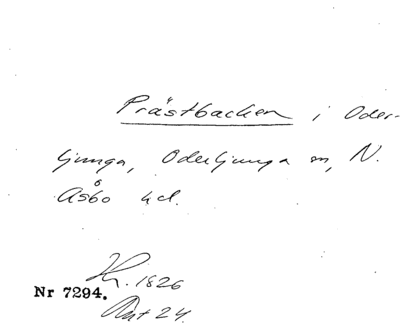 Prästbacken i Oder-
ljunga, Oderljunga sn, N.
Åsbo hd.
Kr. 1826
Nr 7294.
Akt 24.